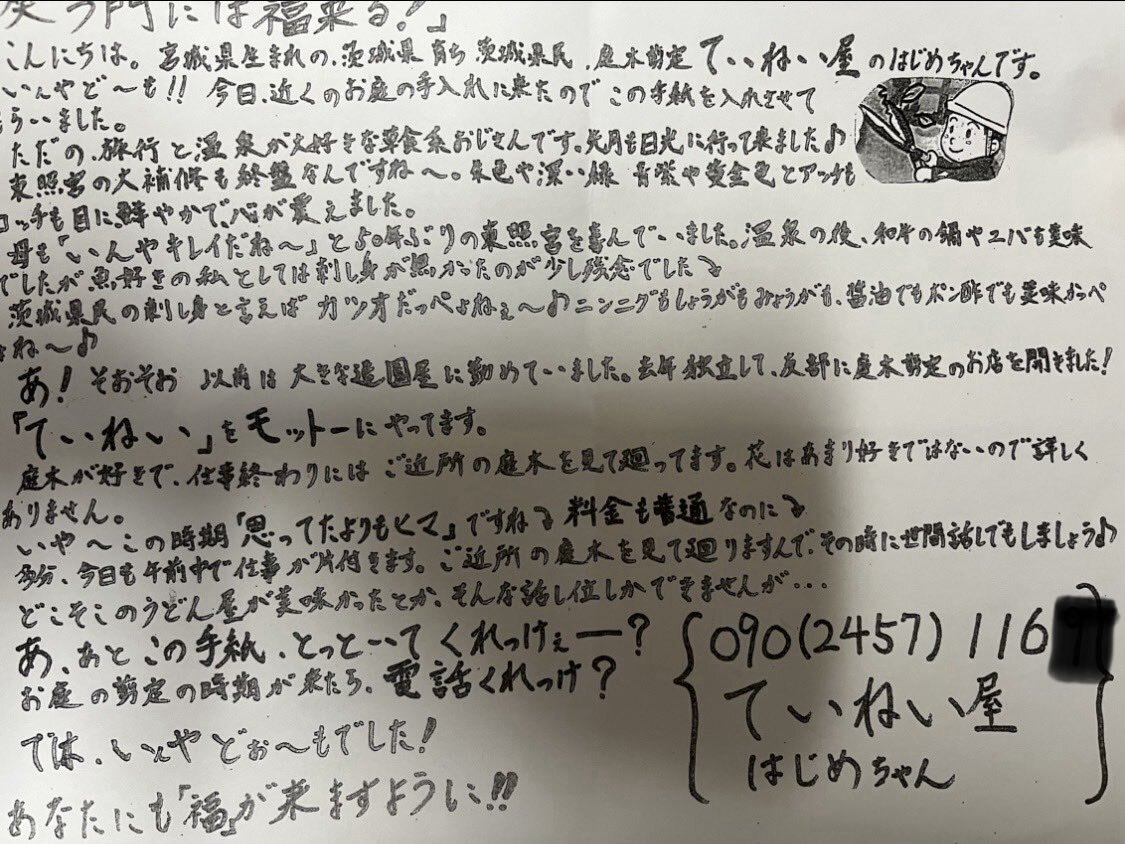 笑う門には福来る！」
こんにちは。宮城県生まれの、茨城県育ち茨城県民、庭木剪定ていねい屋のはじめちゃんです。
いんやど〜も!! 今日、近くのお庭の手入れに来たのでこの手紙を入れさせて
もらいました。
ただの、旅行と温泉が大好きな草食系おじさんです。先月も日光に行って来ました♪
東照宮の大補修も終盤なんですね〜。朱色や深い緑 青紫や黄金色とアッチも
コッチも目に鮮やかで、心が震えました。
母も「いんやキレイだね〜」と50年ぶりの東照宮を喜んでいました。温泉の後、和牛の鍋やユバも美味
でしたが魚好きの私としては刺し身が無かったのが少し残念でした
茨城県民の刺し身と言えば カツオだっぺよねぇ〜♪ニンニグもしょうがもみょうがも、醤油でもポン酢でも美味かっぺ
よね〜♪
あ！そおそお 以前は大きな造園屋に勤めていました。去年独立して、友部に庭木剪定のお店を開きました！
「ていねい」をモットーにやってます。
庭木が好きで、仕事終わりにはご近所の庭木を見て廻ってます。花はあまり好きではないので詳しく
ありません。
いや〜この時期「思ってたよりもヒマ」ですね 料金も普通なのに
多分、今日も午前中で仕事が片付きます。ご近所の庭木を見て廻りますんで、その時に世間話してもしましょう♪
どこそこのうどん屋が美味かったとか、そんな話し位しかできませんが・・・
あ、あとこの手紙、とっと－てくれっけぇー？
お庭の剪定の時期が来たら、電話くれっけ？
では、いんやどぉ〜もでした！
あなたにも「福」が来ますように!!
090(2457)116
ていねい屋
はじめちゃん